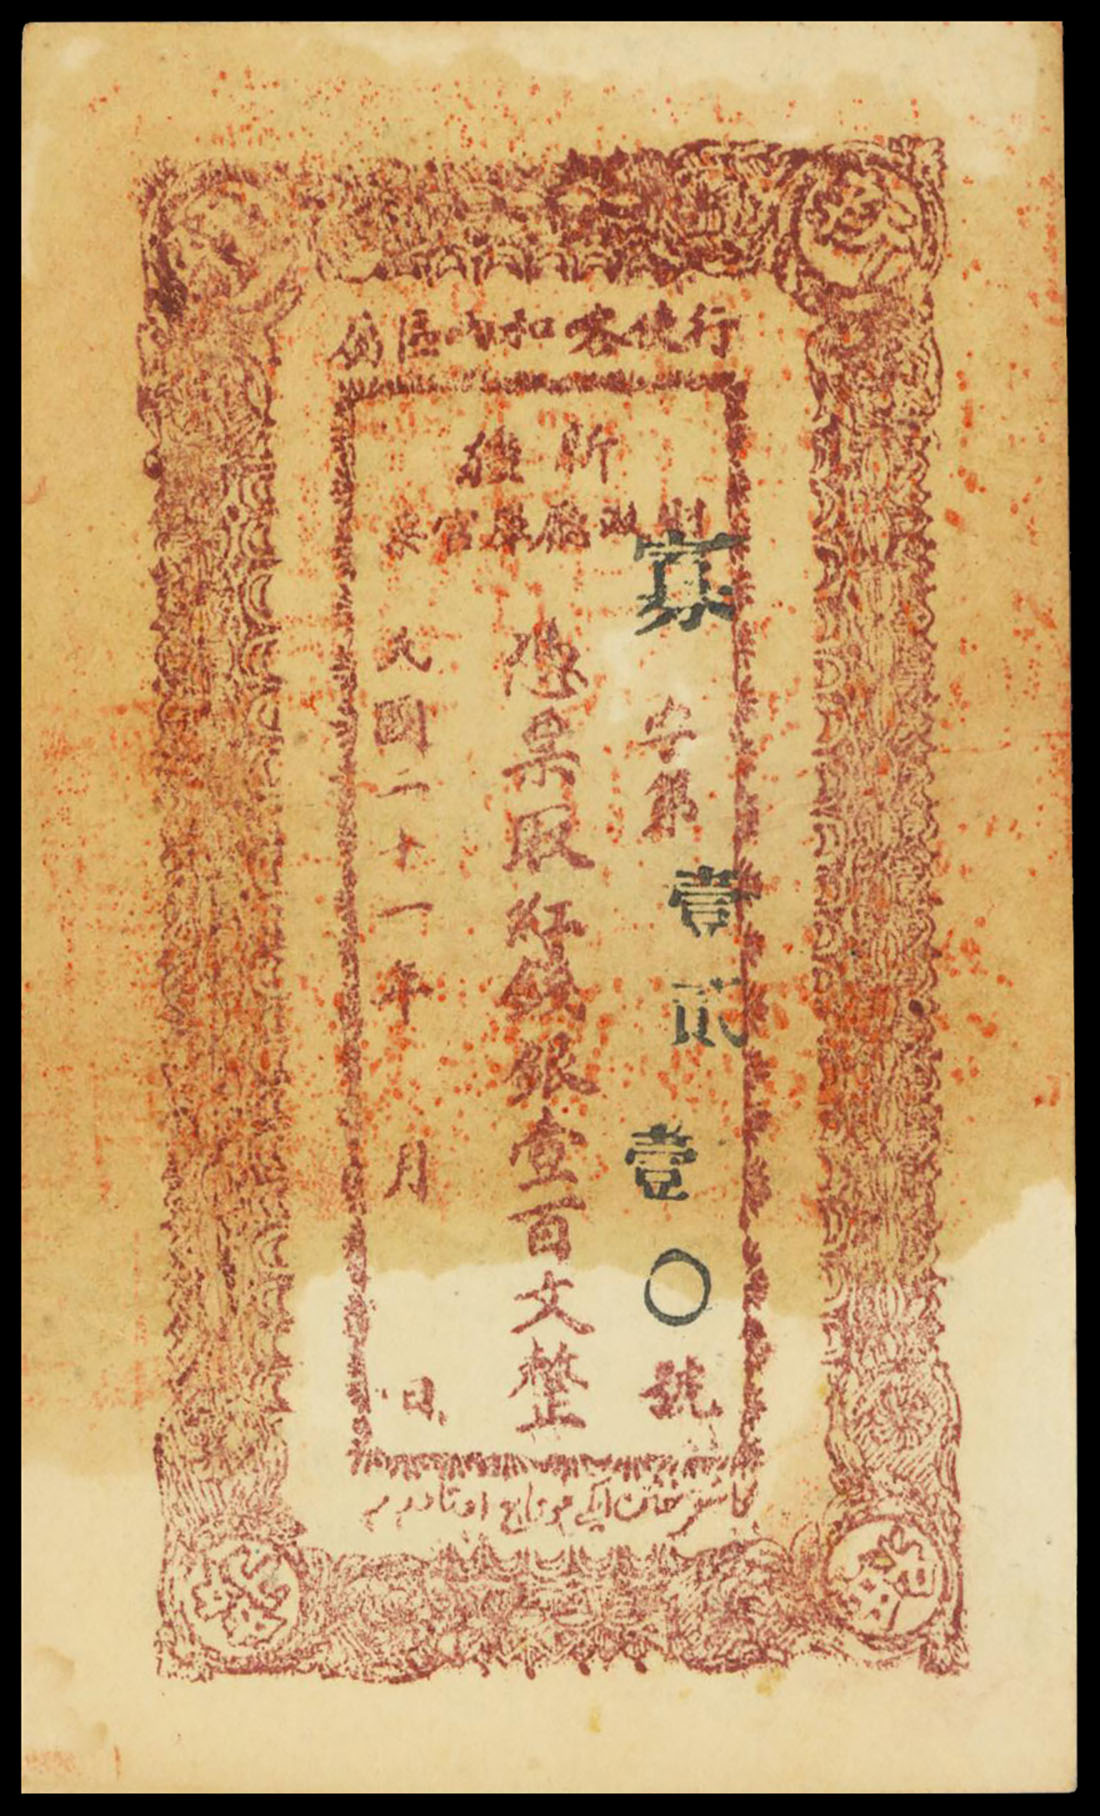 行使喀和兩區
新疆
財政廳庫官票
字第壹貳壹〇號
憑票取紅錢銀壹百文整
民國二十一年 月 日
كاشغر ختن ایکی